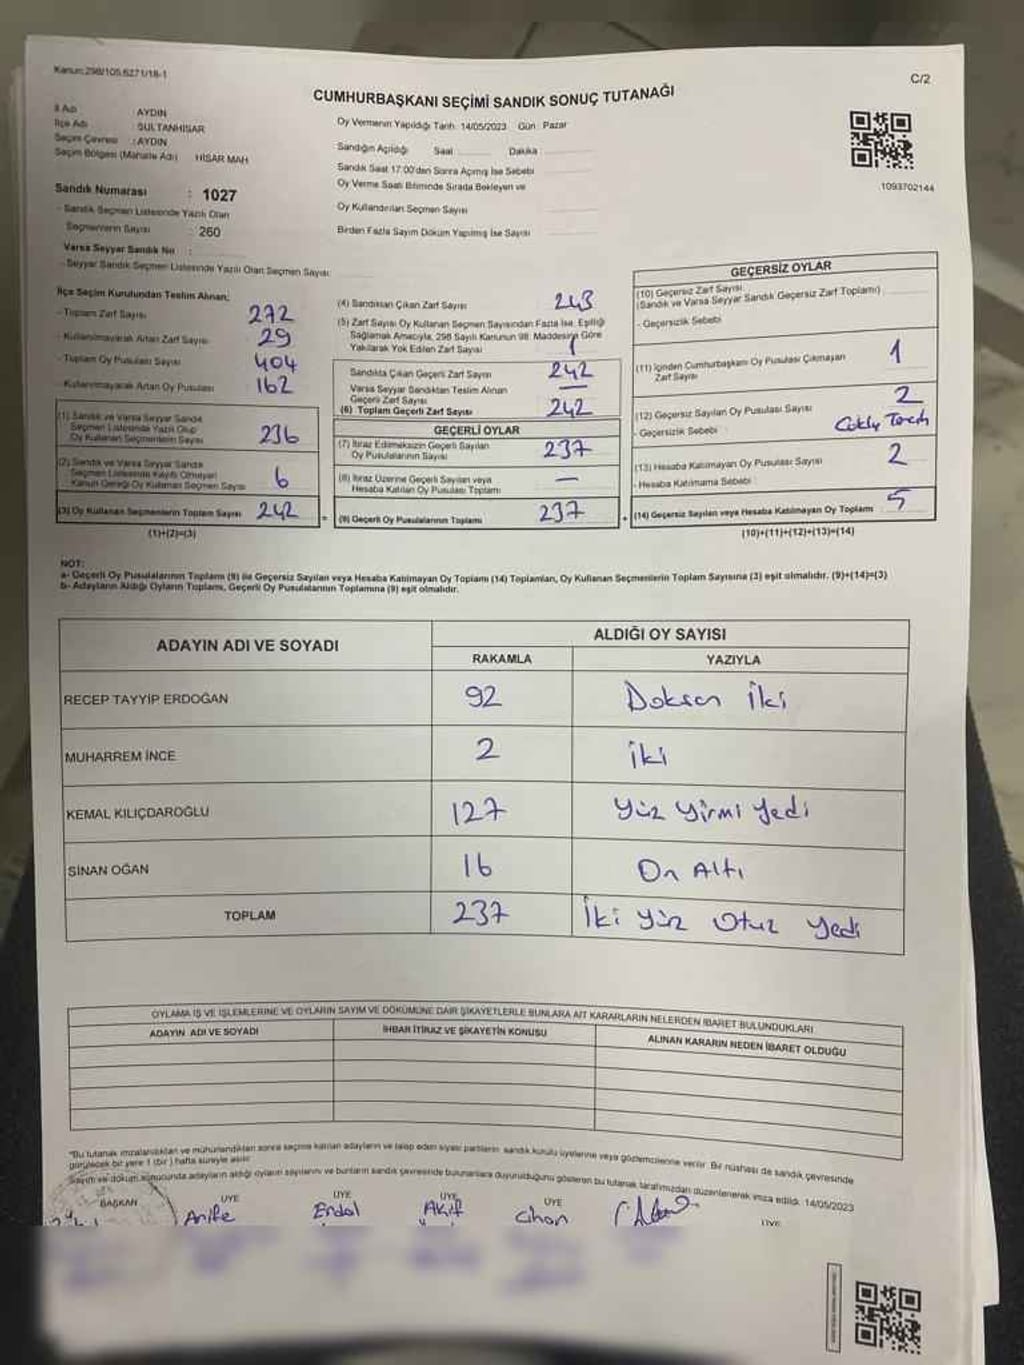 Kanun:298/105.6271/18-1
C/2
CUMHURBAŞKANI SEÇİMİ SANDIK SONUÇ TUTANAĞI
İl Adı : AYDIN
İlçe Adı : SULTANHİSAR
Seçim Çevresi : AYDIN
Seçim Bölgesi (Mahalle Adı) HİSAR MAH
Sandık Numarası : 1027
- Sandık Seçmen Listesinde Yazılı Olan
Seçmenlerin Sayısı : 260
Varsa Seyyar Sandık No :
- Seyyar Sandık Seçmen Listesinde Yazılı Olan Seçmen Sayısı:
Oy Vermenin Yapıldığı Tarih: 14/05/2023 Gün : Pazar
Sandığın Açıldığı Saat Dakika
Sandık Saat 17:00'den Sonra Açımış İse Sebebi
Oy Verme Saati Bitiminde Sırada Bekleyen ve
Oy Kullandırılan Seçmen Sayısı
Birden Fazla Sayım Döküm Yapılmış İse Sayısı
1093702144
İlçe Seçim Kurulundan Teslim Alınan;
- Toplam Zarf Sayısı 272
- Kullanılmayarak Artan Zarf Sayısı 29
- Toplam Oy Pusulası Sayısı 404
- Kullanılmayarak Artan Oy Pusulası 162
(1) Sandık ve Varsa Seyyar Sandık
Seçmen Listesinde Yazılı Olup
Oy Kullanan Seçmenlerin Sayısı 236
(2) Sandık ve Varsa Seyyar Sandık
Seçmen Listesinde Kayıtlı Olmayan
Kanun Gereği Oy Kullanan Seçmen Sayısı 6
(3) Oy Kullanan Seçmenlerin Toplam Sayısı 242
(1)+(2)=(3)
(4) Sandıktan Çıkan Zarf Sayısı 243
(5) Zarf Sayısı Oy Kullanan Seçmen Sayısından Fazla İse, Eşitliği
Sağlamak Amacıyla, 298 Sayılı Kanunun 98. Maddesine Göre
Yakılarak Yok Edilen Zarf Sayısı 1
Sandıkta Çıkan Geçerli Zarf Sayısı 242
Varsa Seyyar Sandıktan Teslim Alınan
Geçerli Zarf Sayısı —
(6) Toplam Geçerli Zarf Sayısı 242
GEÇERLİ OYLAR
(7) İtiraz Edilmeksizin Geçerli Sayılan
Oy Pusulalarının Sayısı 237
(8) İtiraz Üzerine Geçerli Sayılan veya
Hesaba Katılan Oy Pusulası Toplamı —
= (9) Geçerli Oy Pusulalarının Toplamı 237
GEÇERSİZ OYLAR
(10) Geçersiz Zarf Sayısı
(Sandık ve Varsa Seyyar Sandık Geçersiz Zarf Toplamı)
- Geçersizlik Sebebi
(11) İçinden Cumhurbaşkanı Oy Pusulası Çıkmayan
Zarf Sayısı 1
(12) Geçersiz Sayılan Oy Pusulası Sayısı 2
- Geçersizlik Sebebi :
(13) Hesaba Katılmayan Oy Pusulası Sayısı 2
- Hesaba Katılmama Sebebi :
+ (14) Geçersiz Sayılan veya Hesaba Katılmayan Oy Toplamı 5
(10)+(11)+(12)+(13)=(14)
NOT:
a- Geçerli Oy Pusulalarının Toplamı (9) ile Geçersiz Sayılan veya Hesaba Katılmayan Oy Toplamı (14) Toplamları, Oy Kullanan Seçmenlerin Toplam Sayısına (3) eşit olmalıdır. (9)+(14)=(3)
b- Adayların Aldığı Oyların Toplamı, Geçerli Oy Pusulalarının Toplamına (9) eşit olmalıdır.
ADAYIN ADI VE SOYADI ALDIĞI OY SAYISI
RAKAMLA YAZIYLA
RECEP TAYYİP ERDOĞAN 92 Doksan İki
MUHARREM İNCE 2 İki
KEMAL KILIÇDAROĞLU 127 Yüz Yirmi Yedi
SİNAN OĞAN 16 On Altı
TOPLAM 237 İki Yüz Otuz Yedi
OYLAMA İŞ VE İŞLEMLERİNE VE OYLARIN SAYIM VE DÖKÜMÜNE DAİR ŞİKAYETLERLE BUNLARA AİT KARARLARIN NELERDEN İBARET BULUNDUKLARI
ADAYIN ADI VE SOYADI İHBAR İTİRAZ VE ŞİKAYETİN KONUSU ALINAN KARARIN NEDEN İBARET OLDUĞU
*Bu tutanak imzalandıktan ve mühürlendikten sonra seçime katılan adayların ve talep eden siyasi partilerin sandık kurulu üyelerine veya gözlemcilerine verilir. Bir nüshası de sandık çevresinde
görülecek bir yere 1 (bir) hafta süreyle asılır.
Sayım ve döküm sonucunda adayların aldığı oyların sayılarını ve bunların sandık çevresinde bulunanlara duyurulduğunu gösteren bu tutanak tarafımızdan düzenlenerek imza edildi. 14/05/2023
BAŞKAN ÜYE ÜYE ÜYE ÜYE ÜYE
Arife Erdal Akif Cihan